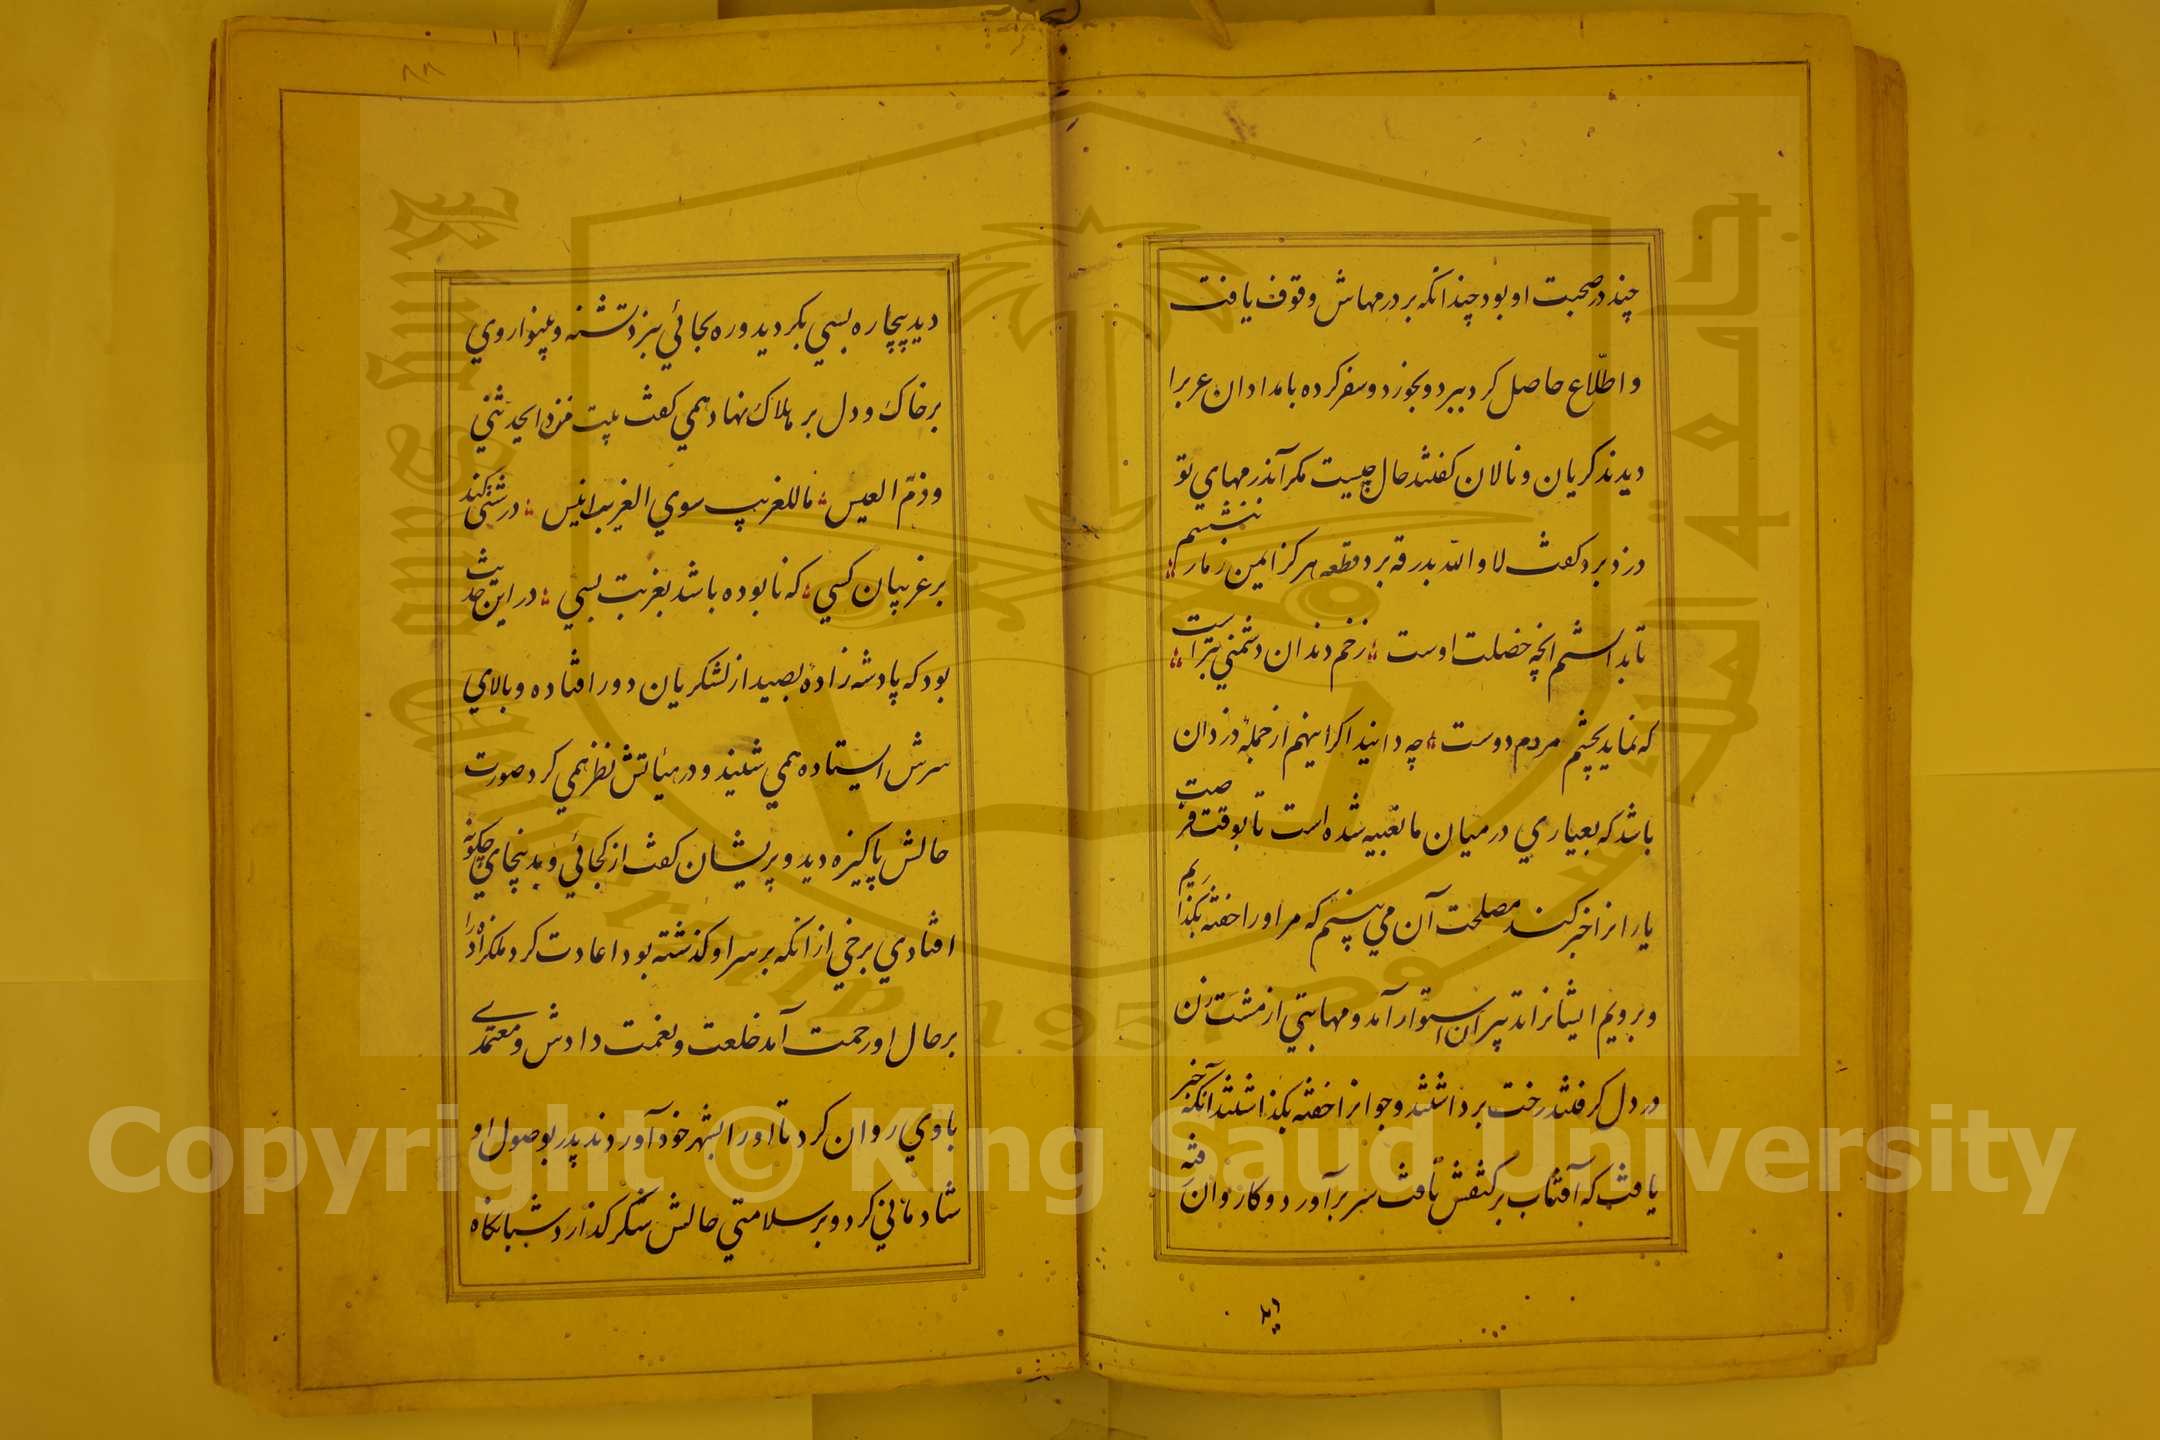 چند در صحبت او بود چندانکه بر درمهاش وقوف یافت
و اطلّاع حاصل کرد ببرد و بخورد و سفر کرده بامدادان عربرا
دیدند کریان و نالان کفتند حال چیست مکر آندرمهای تو
دزد برد کفت لا والله بدرقه برد قطعه هرکز ایمن زمار ننشستم
تا بدانستم انچه خصلت اوست زخم دندان دشمنی بتر است
که نماید بچشم مردم دوست چه دانید اکر اینهم از جمله دزدان
باشد که بعیاری در میان ما تعبیه شده است تا بوقت فرصت
یارانرا خبر کند مصلحت آن می بینم که مر اورا خفته بکذاریم
و برویم ایشانرا تدبیر آن استوار آمد و مهابتی از مشت زن
در دل کرفتند رخت برداشتند و جوانرا خفته بکذاشتند آنکه خبر
یافت که آفتاب بر کتفش تافت سر برآورد و کاروان رفته
دید
دید بیچاره بسی بکردید و ره بجائی نبرد تشنه و بینوا روی
بر خاک و دل بر هلاک نهاد همی کفت بیت من ذا یحدثنی
و ذمّ العیس ما للغریب سوی الغریب انیس درشتی کند
بر غریبان کسی که نابوده باشد بغربت بسی در این حدیث
بود که پادشه زاده بصید از لشکریان دور افتاده و بالای
سرش ایستاده همی شنید و در هیاتش نظر همی کرد صورت
حالش پاکیزه دید و پریشان کفت از کجائی و بدینجای چکونه
افتادی برخی از انکه بر سر او کذشته بود اعادت کرد ملکزاده را
بر حال او رحمت آمد خلعت و نعمت دادش و معتمدی
با وی روان کرد تا اورا بشهر خود آوردند پدر بوصول او
شادمانی کرد و بر سلامتی حالش شکر کذارد شبانکاه
Copyright © King Saud University
جامعة الملك سعود
King Saud University
1957